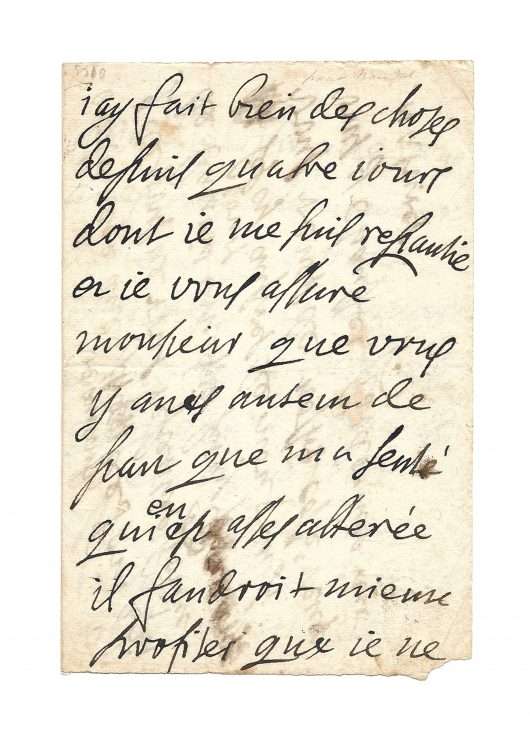 iay fait bien des choses
depuis quatre iours
dont ie me suis repantie
et ie vous assure
monsieur que vous
y aves autem de
part que ma senté
qui en est asses alterée
il faudroit mieux
profiter que ie ne